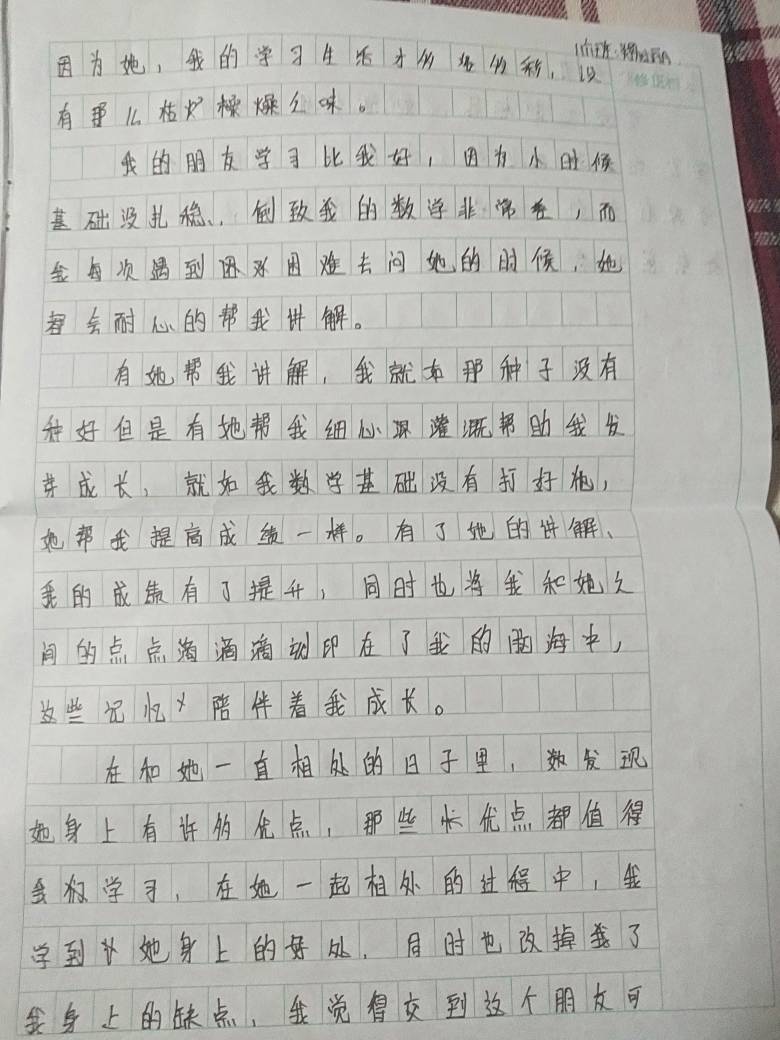 因为她，我的学习生活才多姿多彩，没
有那么枯燥乏味。
我的朋友学习比我好，因为小时候
基础没扎稳，，倒致我的数学非常差，而
我每次遇到困难去问她的时候，她
都会耐心的帮我讲解。
有她帮我讲解，我就如那种子没有
种好但是有她帮我细心灌溉帮助我发
芽成长，就如我数学基础没有打好，
她帮我提高成绩一样。有了她的讲解、
我的成绩有了提升，同时也将我和她之
间的点点滴滴刻印在了我的脑海中，
这些记忆陪伴着我成长。
在和她一直相处的日子里，发现
她身上有许多优点，那些优点都值得
我学习，在她一起相处的过程中，我
学到她身上的好处，同时也改掉我了
我身上的缺点，我觉得交到这个朋友可